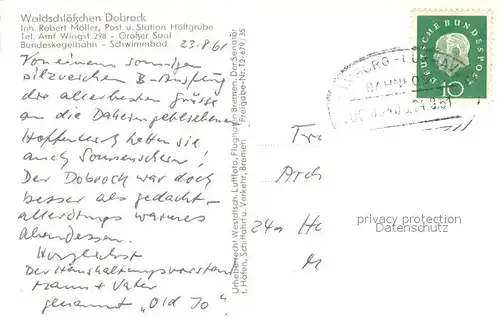 Waldschlößchen Dobrock
Inh. Robert Möller, Post u. Station Höftgrube
Tel. Amt Wingst 298 - Großer Saal
Bundeskegelbahn - Schwimmbad
23.8.61
Von einem sonnigen
die allerbesten Grüße
an die Daheimgebliebenen.
Hoffentlich hatten sie
auch Sonnenschein!
Der Dobrock war doch
besser als gedacht -
allerdings warmes
Abendessen.
Herzlichst
Der Haushaltungsvorstand
Mann + Vater
genannt "Old Jo"!
Urheberrecht Westdtsch. Luftfoto, Flughafen Bremen. Der Senator
f. Häfen, Schiffahrt u. Verkehr, Bremen. Freigabe-Nr. 12-679/35
DEUTSCHE BUNDESPOST
10
BAHNPOST
24a
privacy protection
Datenschutz